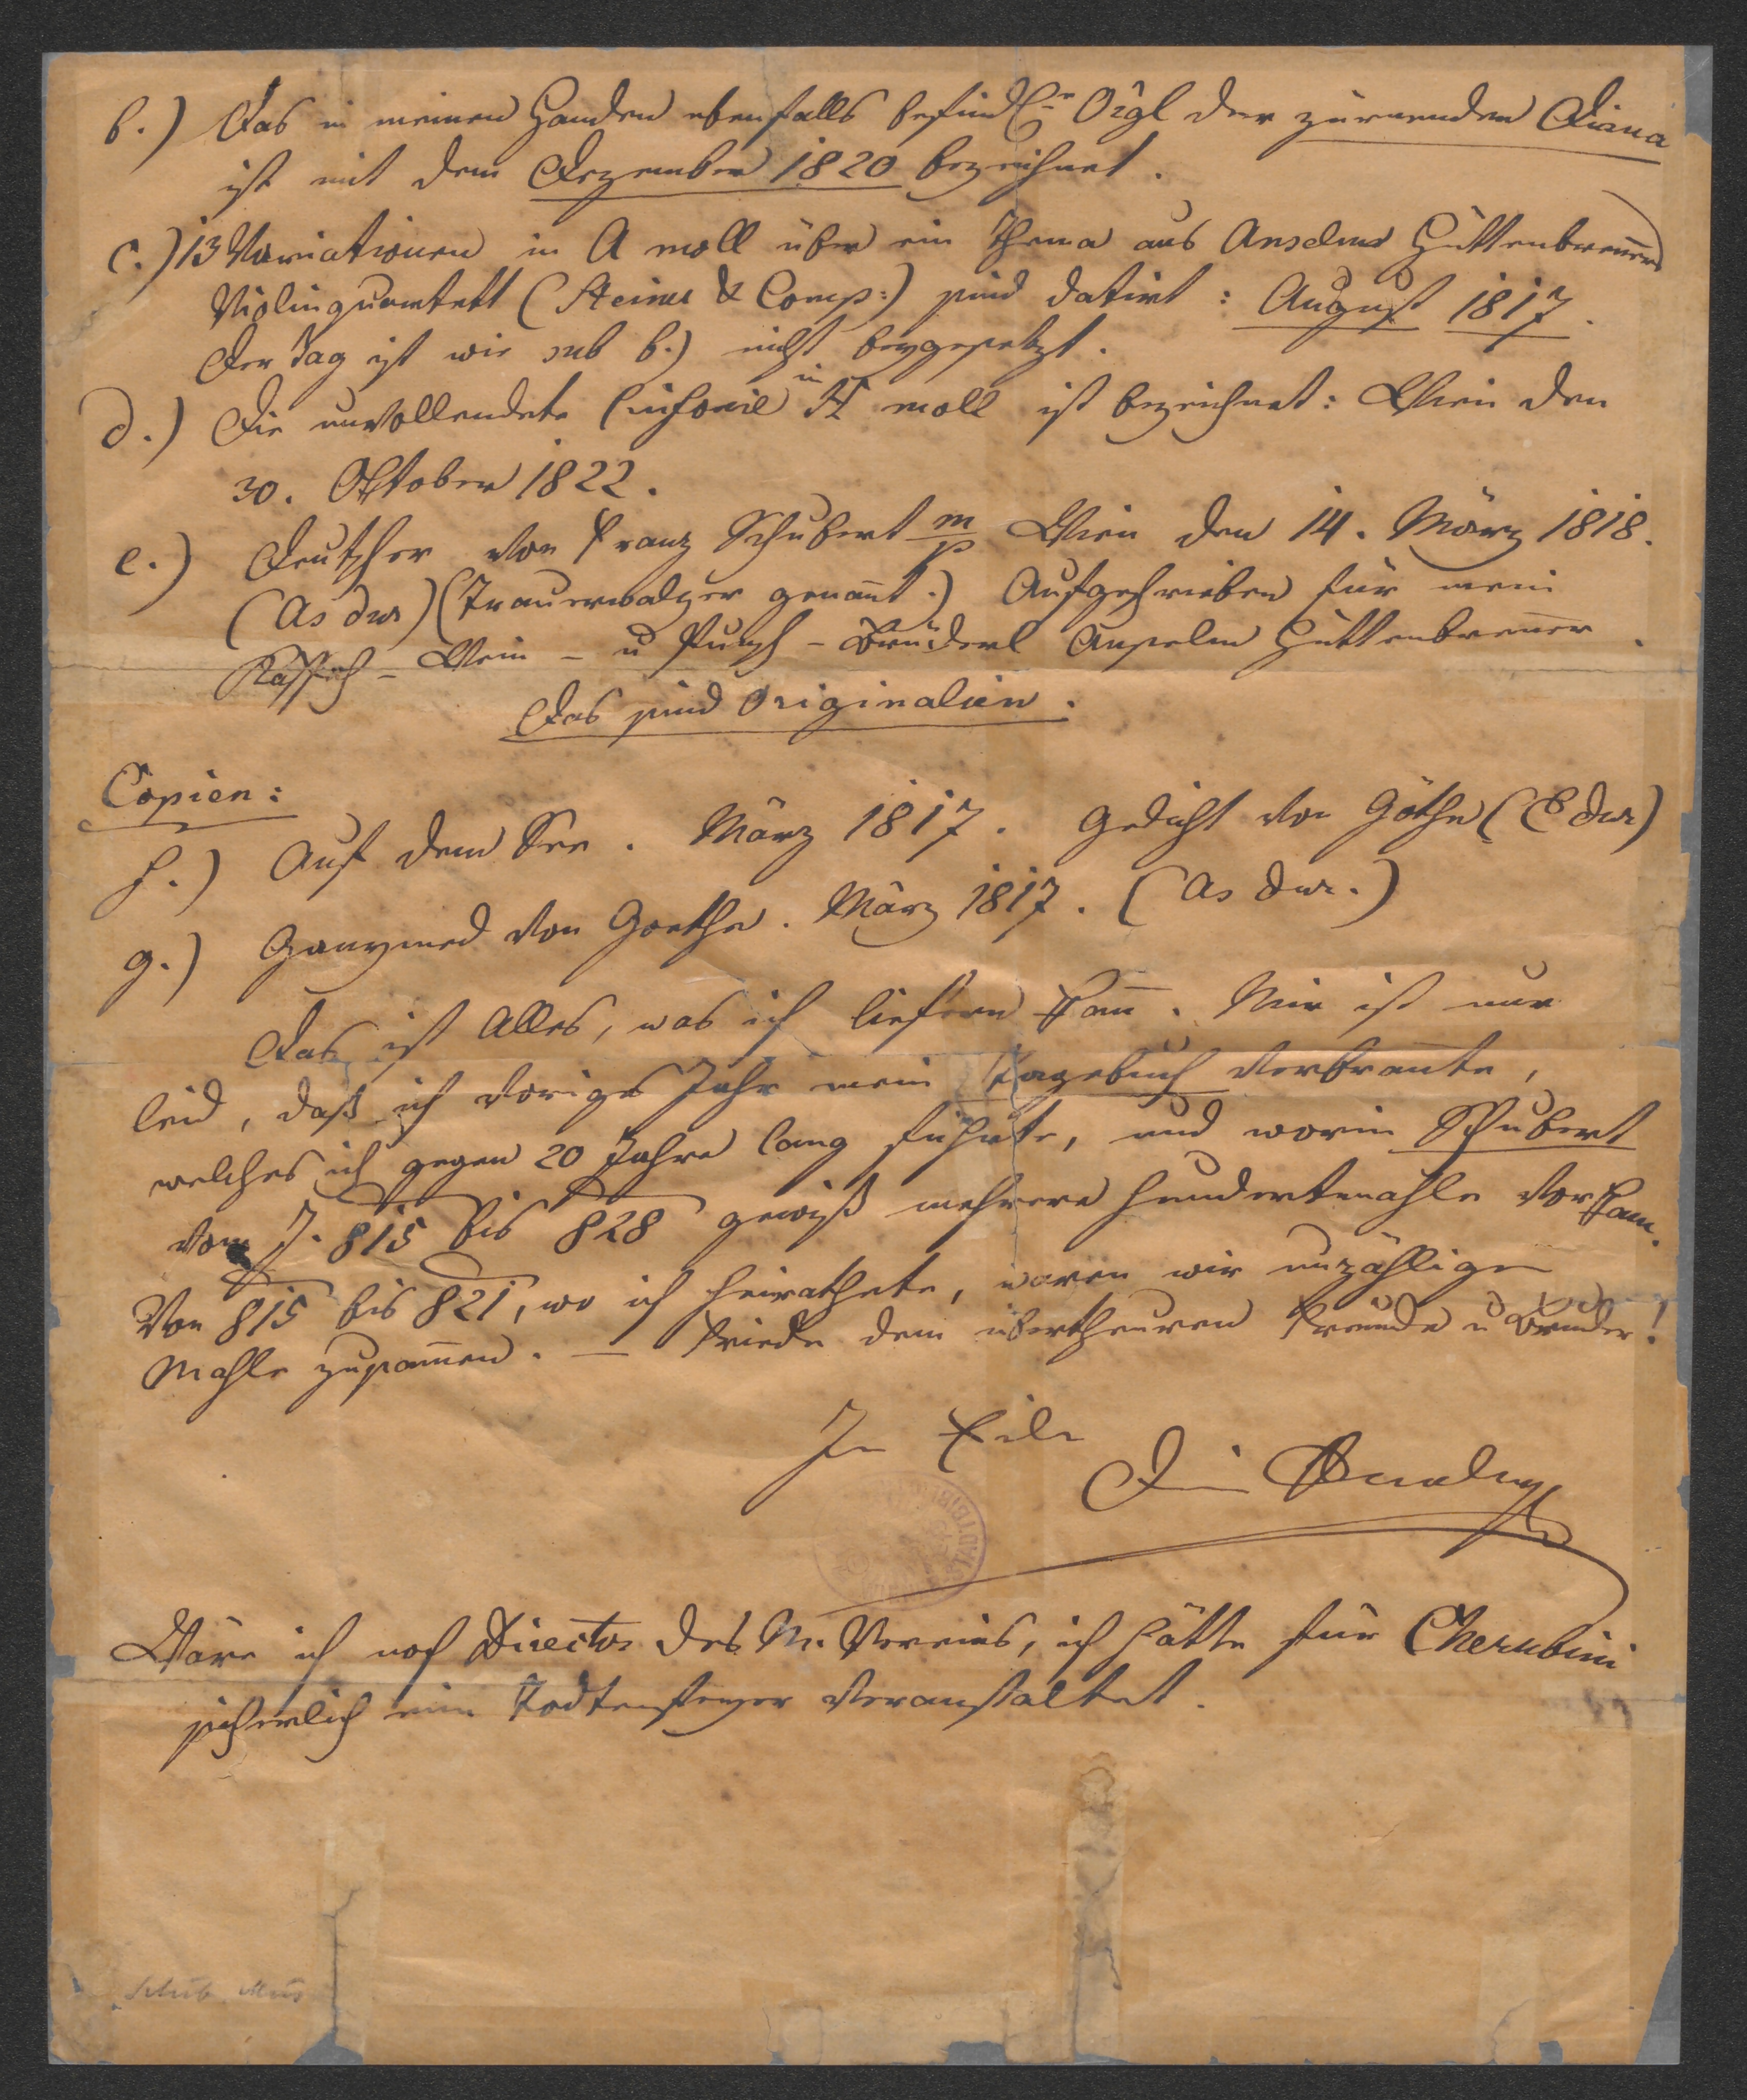 b.) Das in meinen Handen ebenfalls befindle Orgl der zürnenden Diana
ist mit dem Dezember 1820 bezeichnet.
c.) 13 Variationen in A moll über ein Thema aus Anselm Hüttenbreñers
Violinquartett (Steiner & Comp:) sind datirt: August 1817.
Der Tag ist wie sub b.) nicht beygesetzt.
d.) Die unvollendete Sinfonie in H moll ist bezeichnet: Wien den
30. Oktober 1822.
e.) Deutscher von Franz Schubert m/p Wien den 14. März 1818.
(As dur) (Trauerwalzer genañt.) Aufgeschrieben für mein
Kaffeh- Wein- u Punsch-Brüderl Anselm Hüttenbreñer.
Das sind Originalien.
Copien:
f.) Auf dem See. März 1817. Gedicht von Göthe (E dur)
g.) Ganymed von Goethe. März 1817. (As dur.)
Das ist Alles, was ich liefern kañ. Mir ist nur
leid, daß ich voriges Jahr mein Tagebuch verbrañte,
welches ich gegen 20 Jahre lang führte, und worin Schubert
vom J. 815 bis 828 gewiß mehrere hundertmahle vorkam.
Von 815 bis 821, wo ich heirathete, waren wir unzählige
Mahle zusam̄en. — Friede dem übertheuren Freunde u Bruder!
In Eile
Dein Anselm
Wäre ich noch Director des M. Vereins, ich hätte für Cherubini
sicherlich eine Todtenfeyer veranstaltet.
Schub. Mus